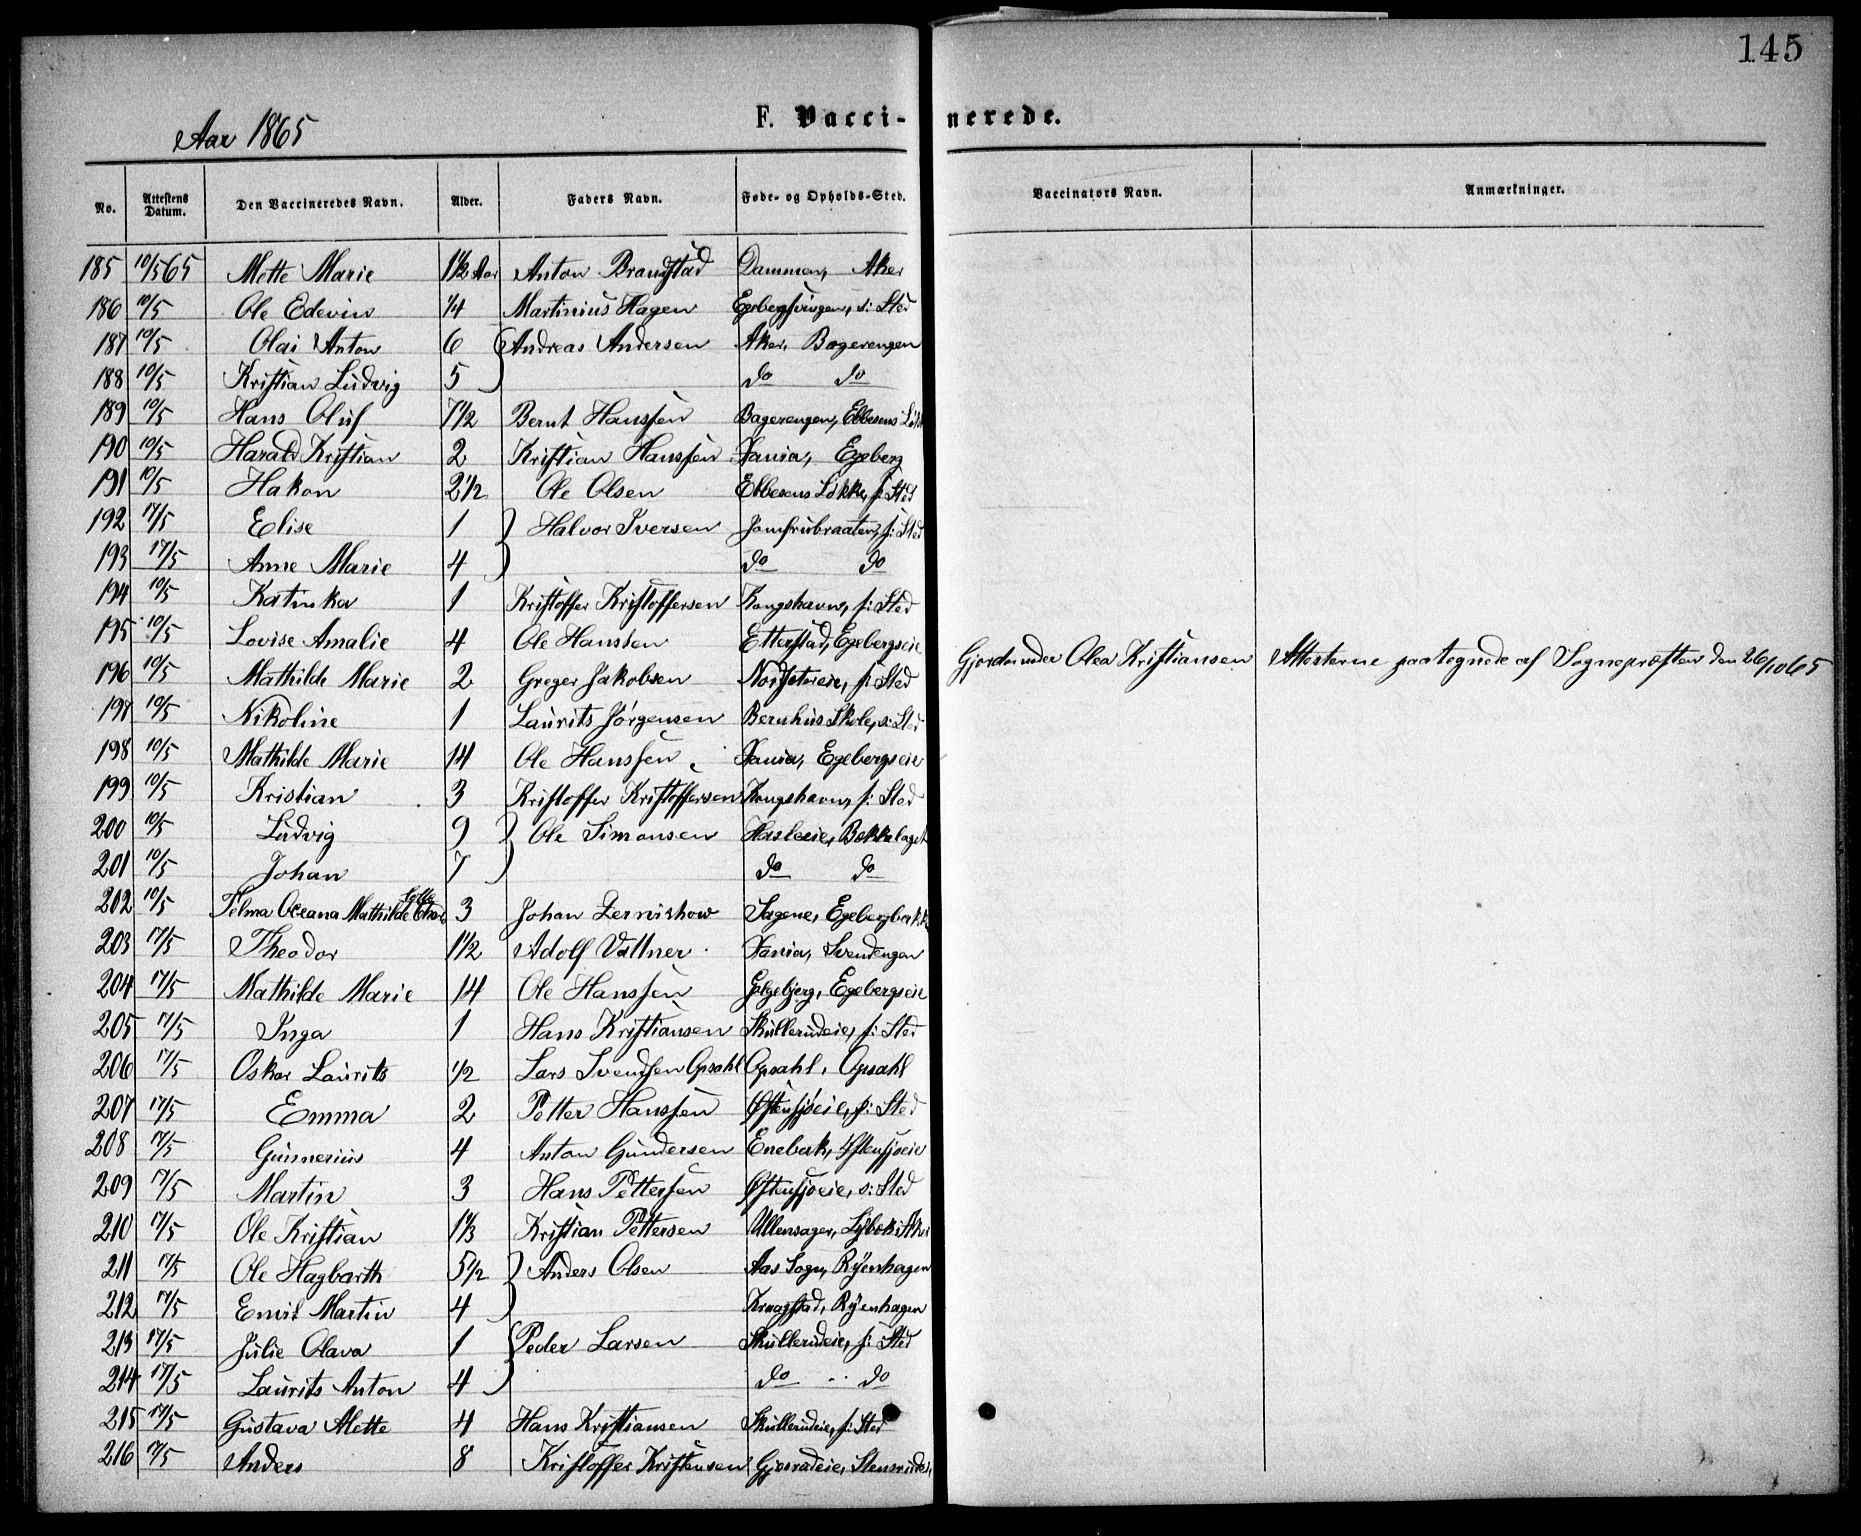 145
F. Vacci- nerede.
Aar 1865
No. Attestens Datum. Den Vaccineredes Navn. Alder. Faders Navn. Føde- og Opholds-Sted. Vaccinators Navn. Anmærkninger.
185 10/5 65 Mette Marie 1 1/2 Aar Anton Brandstad Dammen, Aker
186 10/5 Ole Edevin 1/4 Martinius Hagen Egebergsvingen, s: Sted
187 10/5 Olai Anton 6 Andreas Andersen Aker, Bagerengen
188 10/5 Kristian Ludvig 5 do do
189 10/5 Hans Oluf 7 1/2 Bernt Hanssen Bagerengen, Ebbesens
190 10/5 Harald Kristian 2 Kristian Hanssen Xania, Egeberg
191 10/5 Hakon 2 1/2 Ole Olsen Ebbesens Løkke, s: Sted
192 17/5 Elise 1 Halvor Iversen Jomfrubraaten, s: Sted
193 17/5 Anne Marie 4 do do
194 10/5 Katinka 1 Kristoffer Kristoffersen Kongshavn, s: Sted
195 10/5 Lovise Amalie 4 Ole Hanssen Etterstad, Egebergseie
Gjordmoder Olea Kristiansen Attesterne paategnede af Sognepresten den 26/10 65
196 10/5 Mathilde Marie 2 Greger Jakobsen s: Sted
197 10/5 Nikoline 1 Laurits Jørgensen Skole, s: Sted
198 10/5 Mathilde Marie 14 Ole Hanssen Xania, Egebergseie
199 10/5 Kristian 3 Kristoffer Kristoffersen Kongshavn, s: Sted
200 10/5 Ludvig 9 Ole Simonsen Hasleeie, Bekkelaget
201 10/5 Johan 7 do do
202 10/5 Telma Oceana Mathilde 3 Johan Sagene, Egebergbakk
203 17/5 Theodor 1 1/2 Adolf Vallner Xania, Svendengen
204 17/5 Mathilde Marie 14 Ole Hanssen Galgebjerg, Egebergseie
205 17/5 Inga 1 Hans Kristiansen Skullerudeie, s: Sted
206 17/5 Oskar Laurits 1/2 Lars Svendsen Opsahl Opsahl, Opsahl
207 17/5 Emma 2 Petter Hanssen Østensjøeie, s: Sted
208 17/5 Gunnerius 4 Anton Gundersen Enebak, Østensjøeie
209 17/5 Martin 3 Hans Pettersen Østensjøeie, s: Sted
210 17/5 Ole Kristian 1 1/3 Kristian Pettersen Ullensager,
211 17/5 Ole Hagbarth 5 1/2 Anders Olsen Aas Sogn, Ryenhagen
212 17/5 Emil Martin 4 Kraagstad, Ryenhagen
213 17/5 Julie Olava 1 Peder Larsen Skullerudeie, s: Sted
214 17/5 Laurits Anton 4 do do
215 17/5 Gustava Mette 4 Hans Kristiansen Skullerudeie, s: Sted
216 17/5 Anders 8 Kristoffer Kristensen Gjersrudeie, Stensrudei